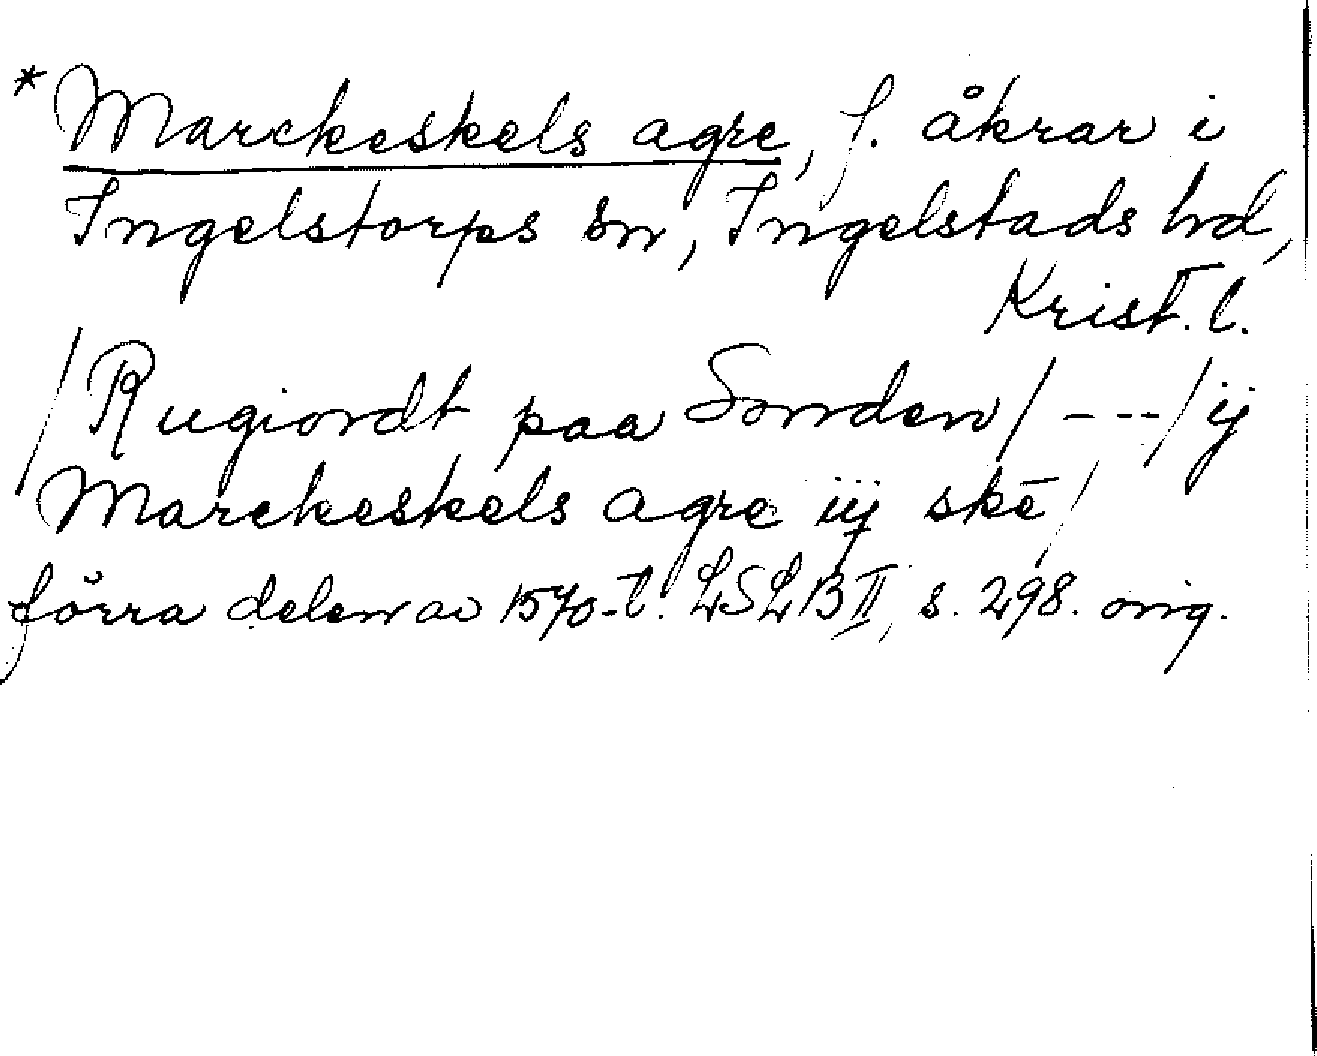 * Marckeskels agre, f. åkrar i
Ingelstorps sn, Ingelstads hd,
Krist. l.
/Rugiordt paa Sonden/ ---/ ij
Marckeskels agre iij ske/
förra delen av 1570-t. LSLB II, s. 298. orig.